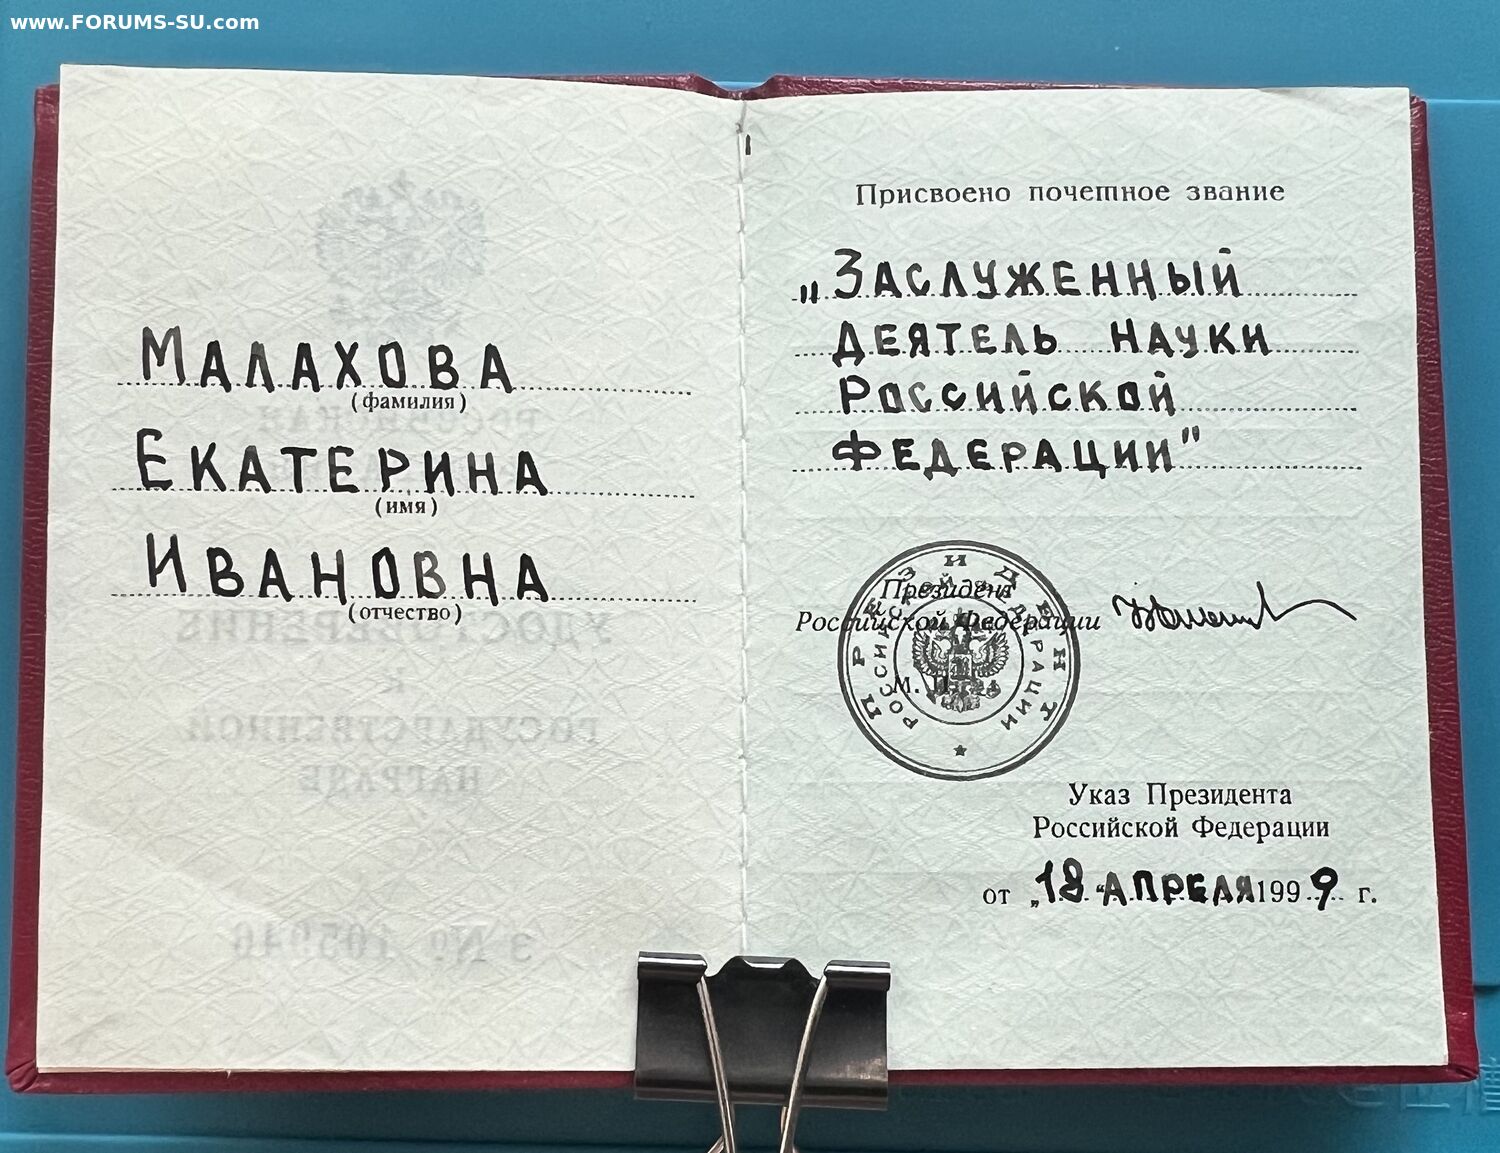 www.FORUMS-SU.com
МАЛАХОВА
(фамилия)
ЕКАТЕРИНА
(имя)
ИВАНОВНА
(отчество)
Присвоено почетное звание
„ЗАСЛУЖЕННЫЙ
ДЕЯТЕЛЬ НАУКИ
РОССИЙСКОЙ
ФЕДЕРАЦИИ"
Президент
Российской Федерации
М. П.
ПРЕЗИДЕНТ
РОССИЙСКОЙ ФЕДЕРАЦИИ
Указ Президента
Российской Федерации
от „18“ АПРЕЛЯ 1999 г.